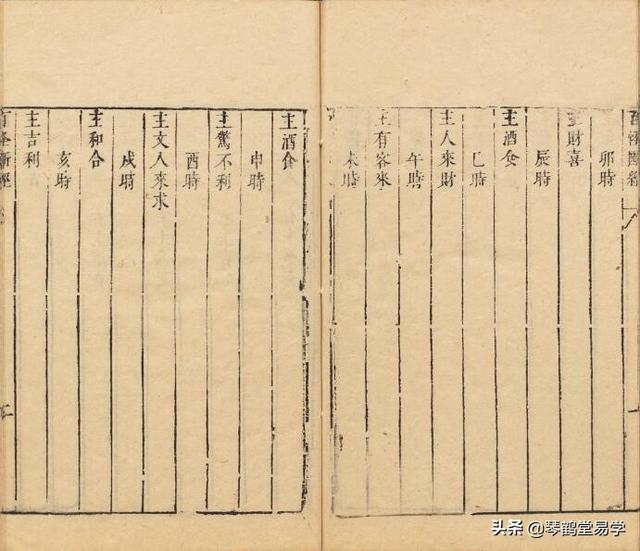 卯時
主財喜
辰時
主酒食
巳時
主人來財
午時
主有客來
未時
主酒食
申時
主驚不利
酉時
主文人來求
戌時
主和合
亥時
主吉利
头条 @琴鹤堂易学